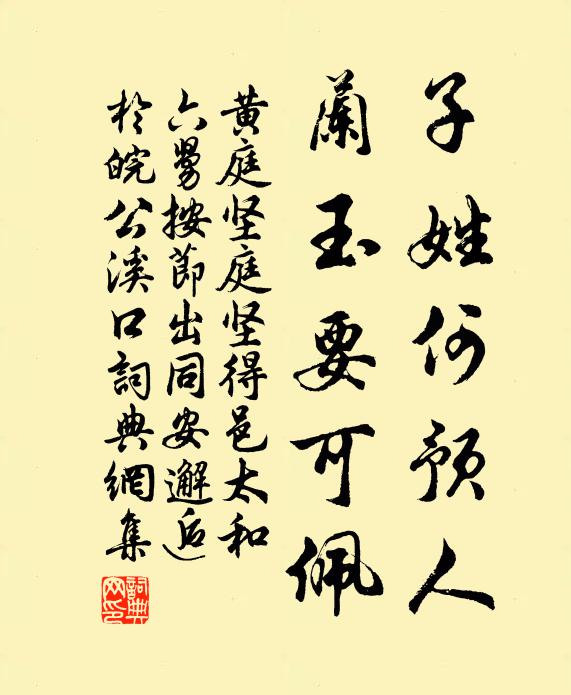 子姓何预人
蘭玉要可佩
黄庭坚庭坚得邑太和
六舅按節出同安邂逅
於皖公溪口詞典網集
詞典网印